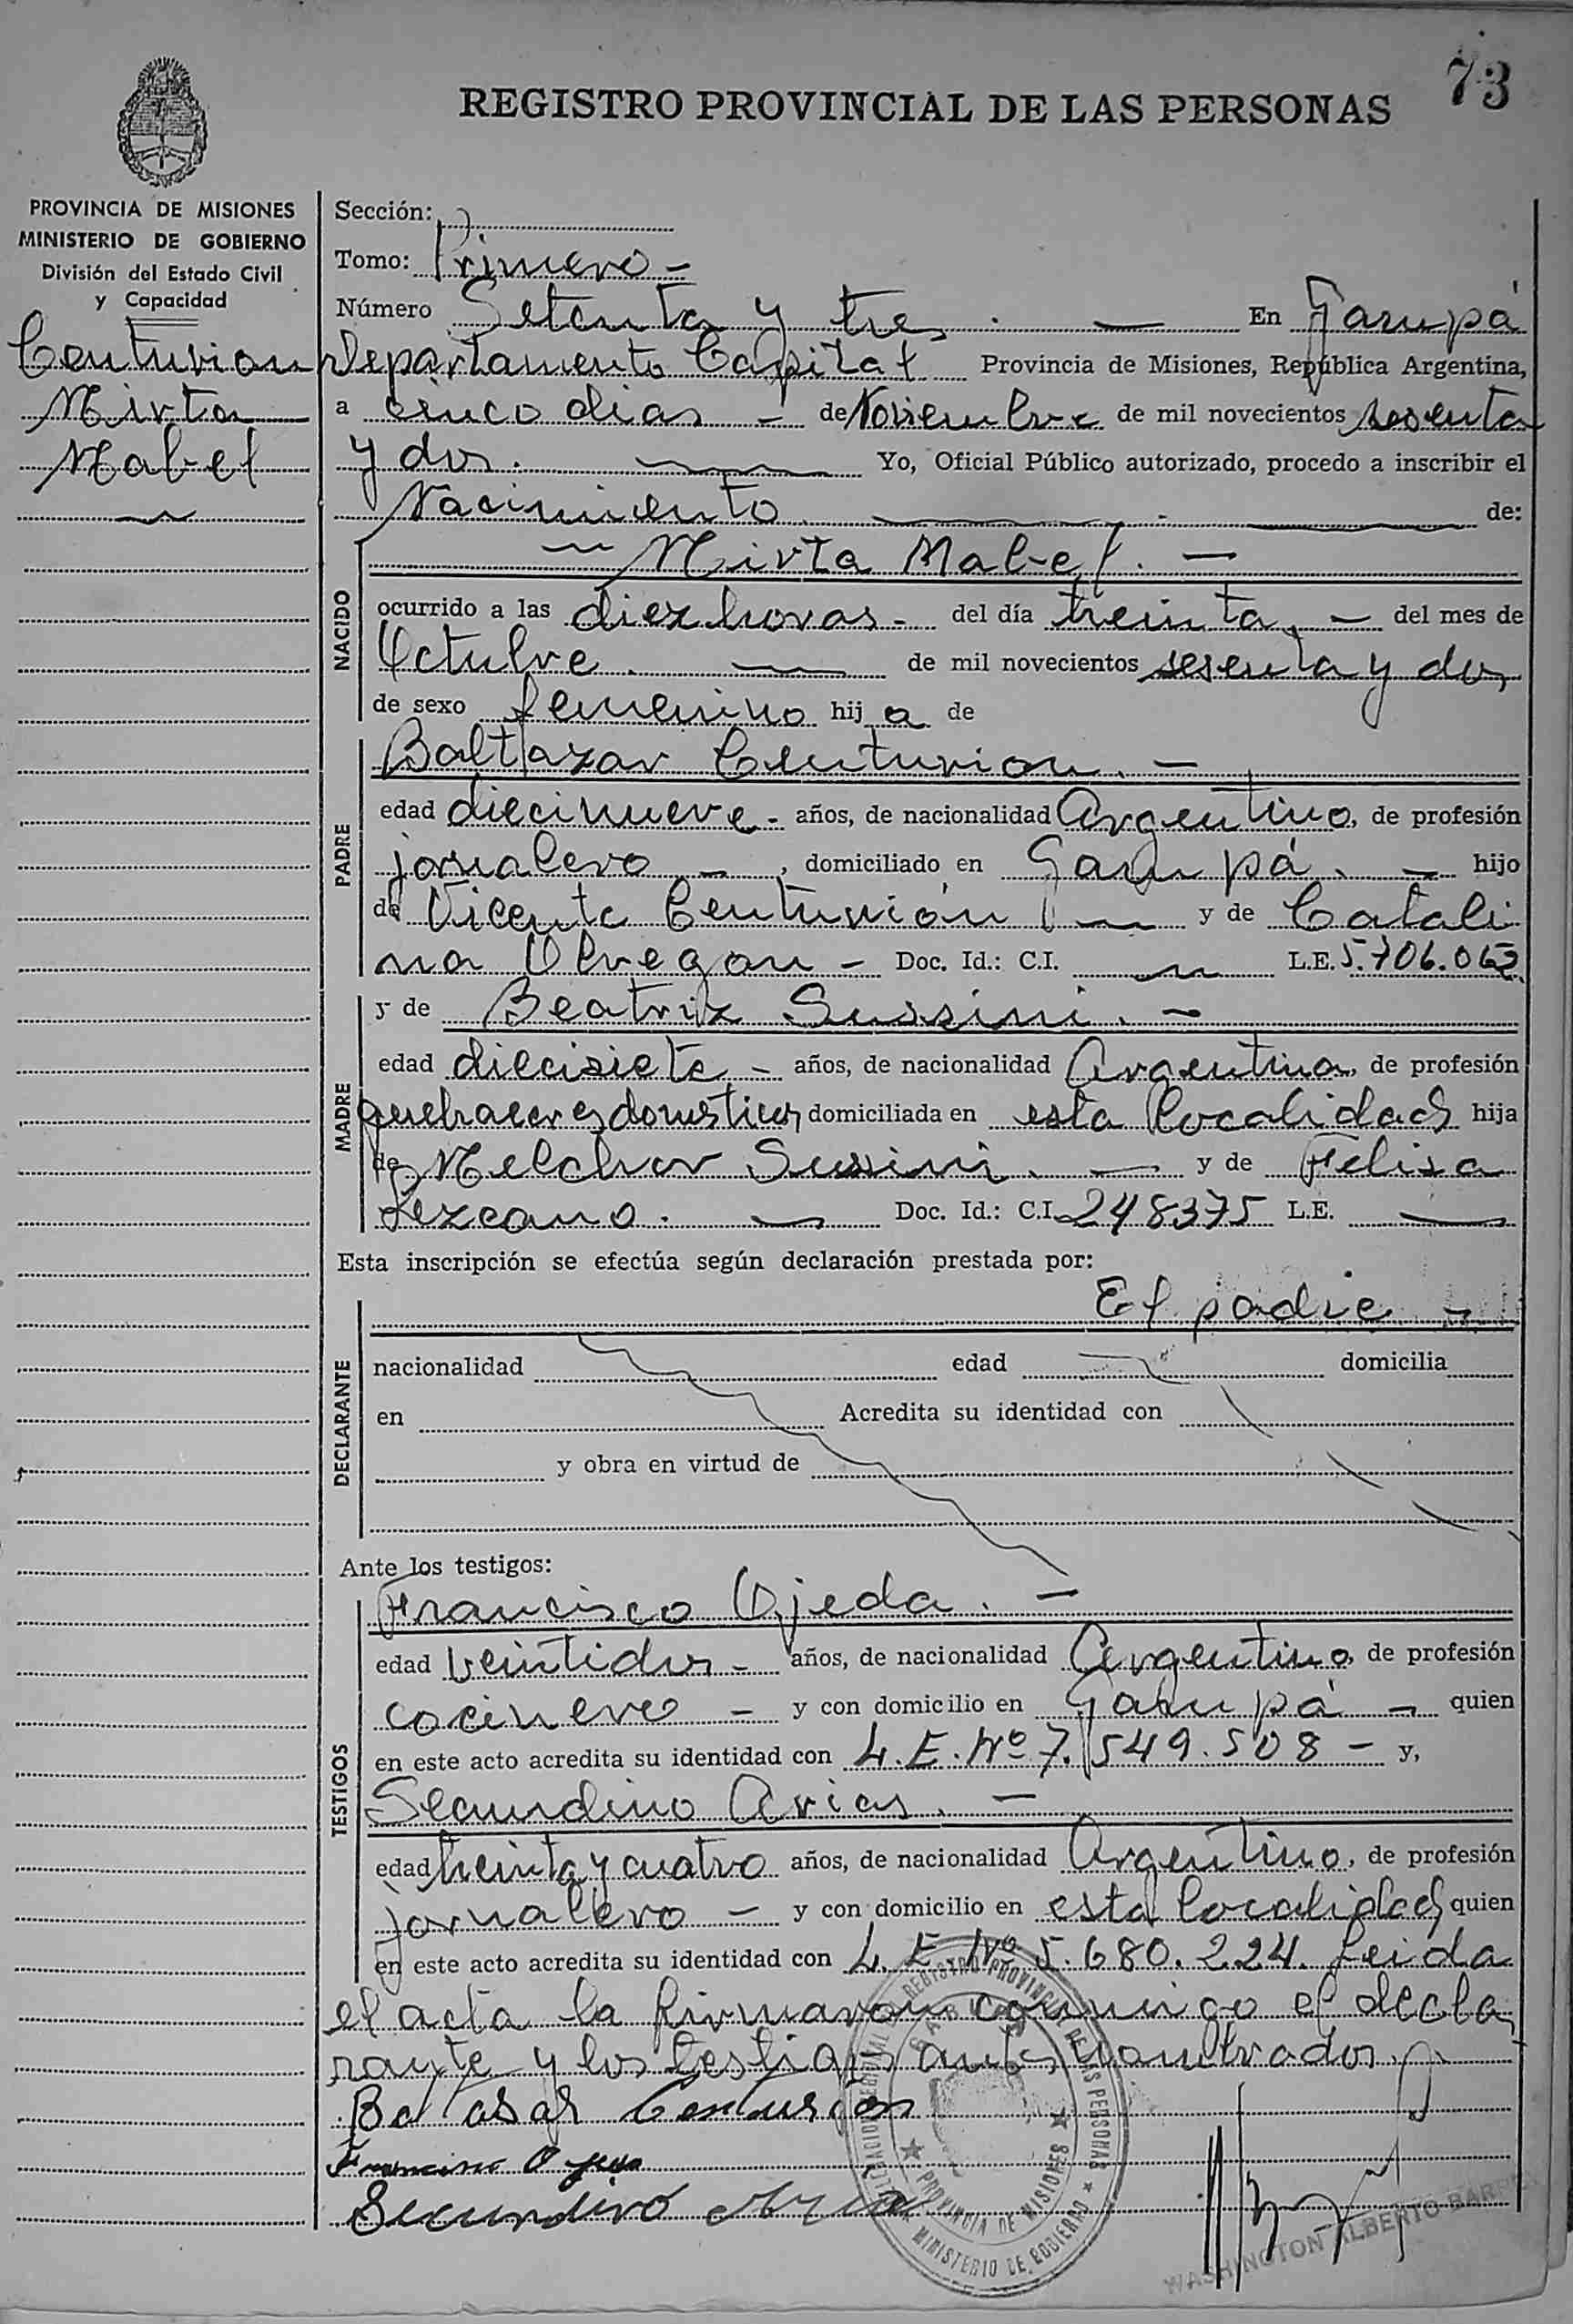 73
REGISTRO PROVINCIAL DE LAS PERSONAS
PROVINCIA DE MISIONES
MINISTERIO DE GOBIERNO
División del Estado Civil
y Capacidad
Centurion
Mirta
Mabel
Sección:
Tomo: Primero -
Número Setenta y tres. — En Garupá
Departamento Capital Provincia de Misiones, República Argentina,
a cinco dias - de Noviembre de mil novecientos sesenta
y dos. — Yo, Oficial Público autorizado, procedo a inscribir el
Nacimiento. — de:
NACIDO
— Mirta Mabel. —
ocurrido a las diez horas - del día treinta. — del mes de
Octubre. — de mil novecientos sesenta y dos
de sexo femenino hij a de
PADRE
Baltazar Centurion. —
edad diecinueve - años, de nacionalidad Argentino, de profesión
jornalero —, domiciliado en Garupá. — hijo
de Vicente Centurión — y de Catali
na Obregon - Doc. Id.: C.I. — L.E. 5.706.062
MADRE
y de Beatriz Sussini. —
edad diecisiete - años, de nacionalidad Argentina, de profesión
quehaceres domesticos domiciliada en esta localidad hija
de Melchor Sussini. — y de Felisa
Lezcano. — Doc. Id.: C.I. 248375 L.E. —
Esta inscripción se efectúa según declaración prestada por:
DECLARANTE
El padre -
nacionalidad edad domicilia
en Acredita su identidad con
y obra en virtud de
Ante los testigos:
TESTIGOS
Francisco Ojeda. —
edad veintidos - años, de nacionalidad Argentino, de profesión
cocinero - y con domicilio en Garupá - quien
en este acto acredita su identidad con L.E. Nº 7.549.508 - y,
Secundino Arias. —
edad treinta y cuatro años, de nacionalidad Argentino, de profesión
jornalero - y con domicilio en esta localidad, quien
en este acto acredita su identidad con L.E. Nº 5.680.224. Leida
el acta la firmaron conmigo el decla
rante y los testigos antes nombrados.
Baltasar Centurion
Francisco Ojeda
Secundino Aria
REGISTRO PROVINCIAL DE LAS PERSONAS
PROVINCIA DE MISIONES
MINISTERIO DE GOBIERNO
WASHINGTON ALBERTO